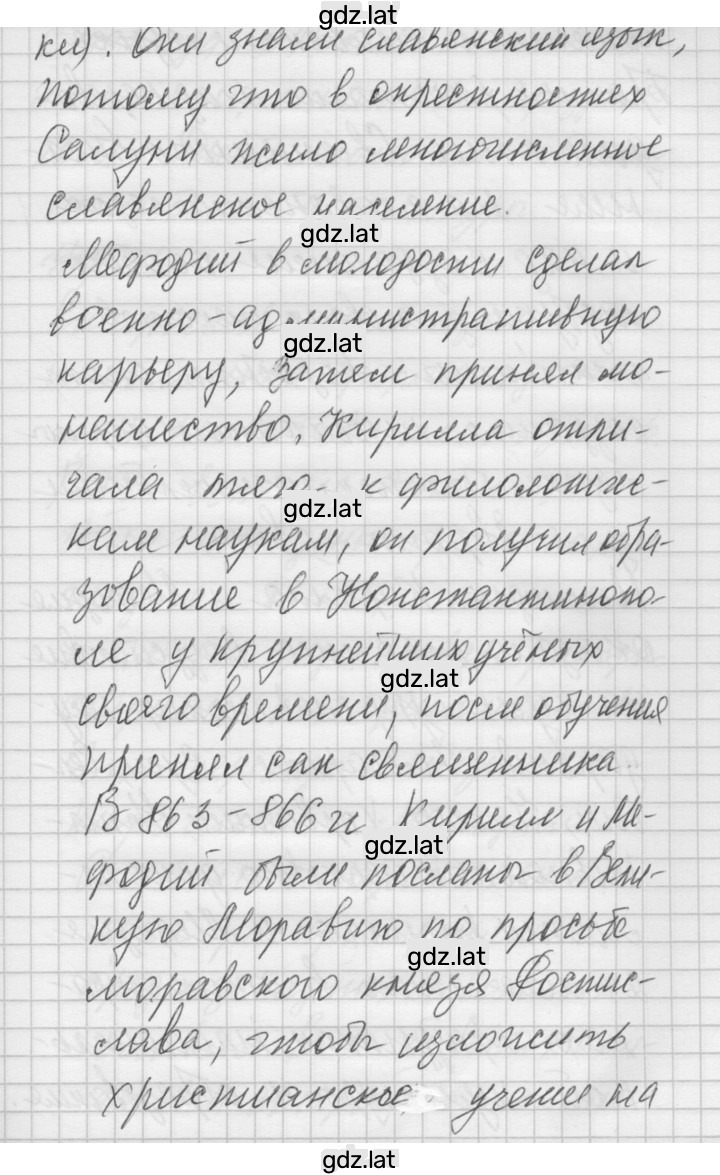 gdz.lat
ки). Они знали славянский язык,
потому что в окрестностях
Салуни жило многочисленное
славянское население.
gdz.lat
Мефодий в молодости сделал
военно-административную
gdz.lat
карьеру, затем принял мо-
нашество. Кирилла отли-
чала тяга к филологиче-
gdz.lat
ким наукам, он получил обра-
зование в Константинопо-
ле у крупнейших учёных
gdz.lat
своего времени, после обучения
принял сан священника.
В 863-866 гг Кирилл и Ме-
gdz.lat
фодий были посланы в Вели-
кую Моравию по просьбе
gdz.lat
моравского князя Ростис-
лава, чтобы изложить
христианское учение на
gdz.lat